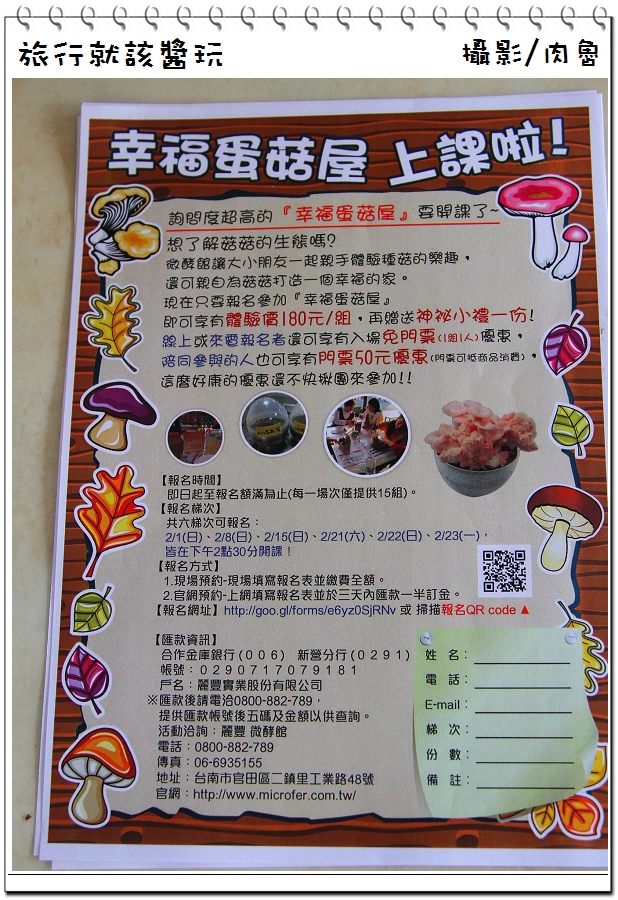 旅行就該醬玩
攝影/肉魯
幸福蛋菇屋 上課啦!
詢問度超高的『幸福蛋菇屋』要開課了~
想了解菇菇的生態嗎?
微酵館讓大小朋友一起親手體驗種菇的樂趣，
還可親自為菇菇打造一個幸福的家。
現在只要報名參加『幸福蛋菇屋』
即可享有體驗價180元/組，再贈送神祕小禮一份!
線上或來電報名者還可享有入場免門票(1組1人)優惠，
陪同參與的人也可享有門票50元優惠(門票可抵商品消費)，
這麼好康的優惠還不快揪團來參加!!
【報名時間】
即日起至報名額滿為止(每一場次僅提供15組)。
【報名梯次】
共六梯次可報名：
2/1(日)、2/8(日)、2/15(日)、2/21(六)、2/22(日)、2/23(一)，
皆在下午2點30分開課！
【報名方式】
1.現場預約-現場填寫報名表並繳費全額。
2.官網預約-上網填寫報名表並於三天內匯款一半訂金。
【報名網址】http://goo.gl/forms/e6yz0SjRNv 或 掃描報名QR code ▲
【匯款資訊】
合作金庫銀行(006) 新營分行(0291)
帳號：0290717079181
戶名：麗豐實業股份有限公司
※匯款後請電洽0800-882-789，
提供匯款帳號後五碼及金額以供查詢。
活動洽詢：麗豐 微酵館
電話：0800-882-789
傳真：06-6935155
地址：台南市官田區二鎮里工業路48號
官網：http://www.microfer.com.tw/
姓 名：
電 話：
E-mail：
梯 次：
份 數：
備 註：